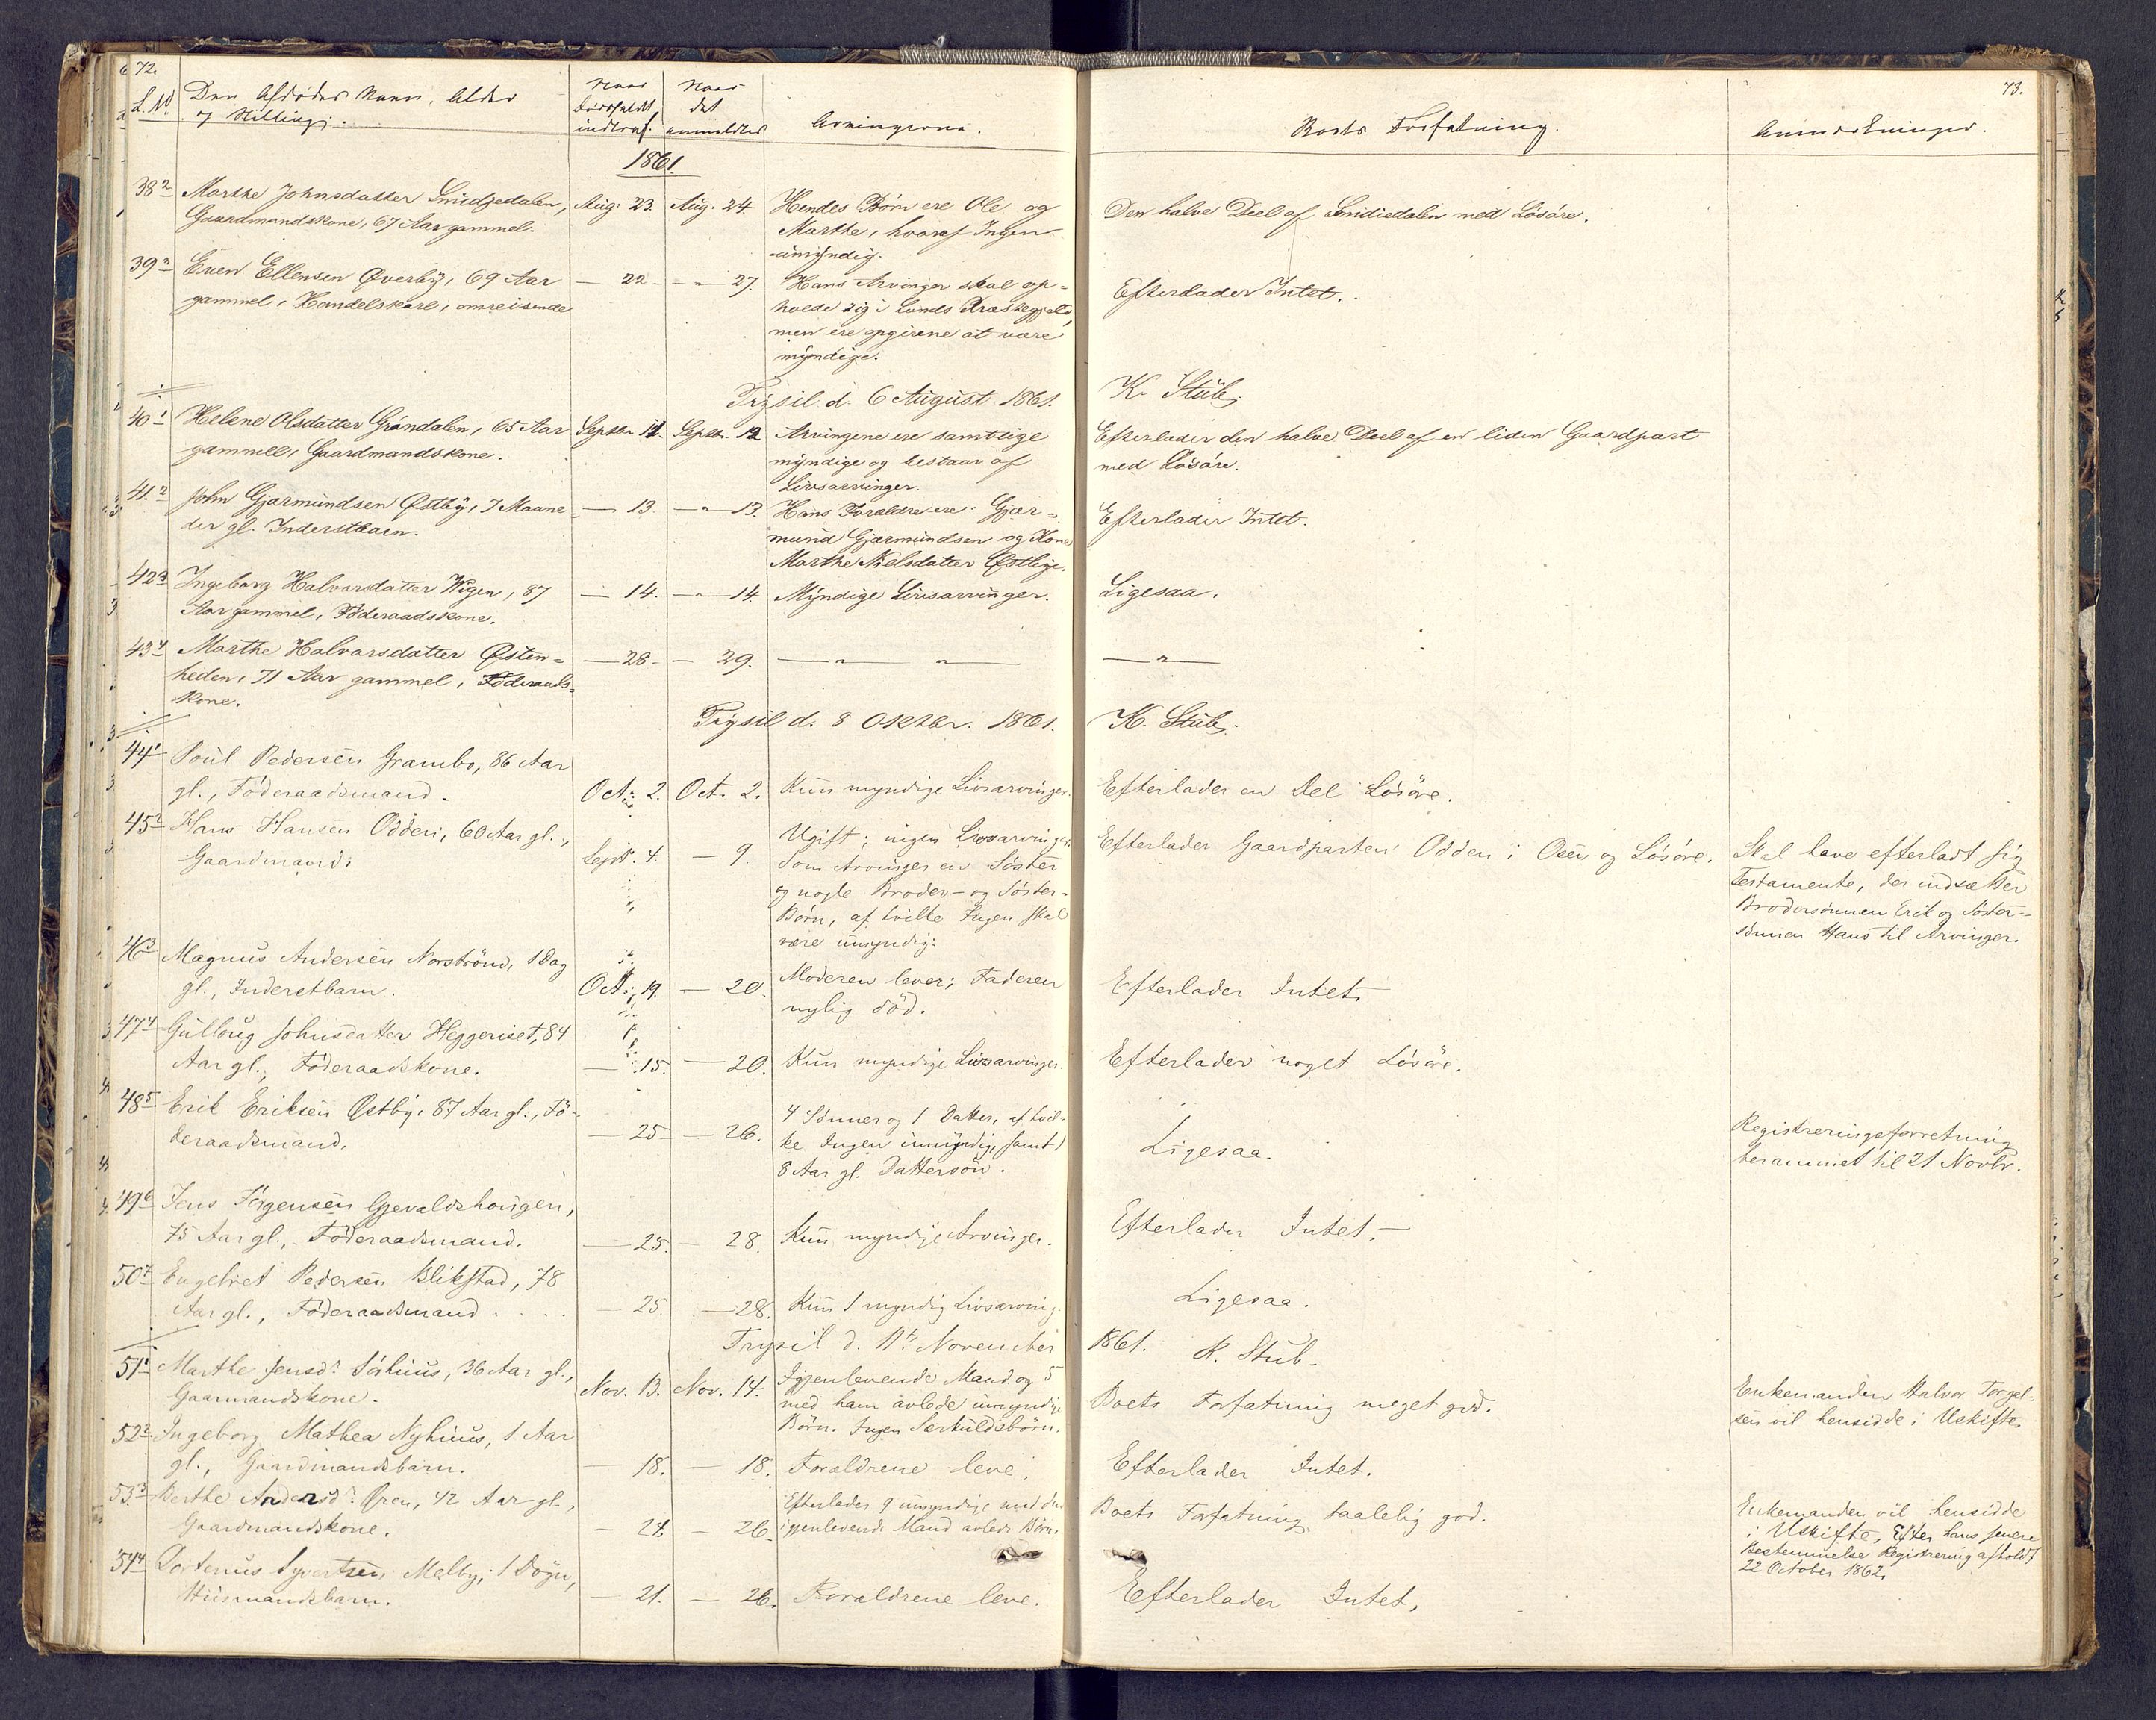 72.
L. No
Den Afdødes Navn, Alder
og Stilling.
Naar
Dødsfaldet
indtraf.
Naar
det
anmeldtes
Arvingerne.
1861.
38 2
Marthe Johnsdatter Smidjedalen,
Gaardmandskone, 67 Aar gammel.
Aug. 23.
Aug. 24.
Hendes Børn ere Ole og
Marthe, hvoraf Ingen
umyndig.
39 3
Even Ellensen Øverby, 69 Aar
gammel, Handelskarl, omreisende
— 22
— " — 27.
Hans Arvinger skal op-
holde sig i Lunds Præstegjæld,
men ere opgivne at være
myndige.
Trysil d. 6 August 1861.
40 1
Helene Olsdatter Grøndalen, 65 Aar
gammel, Gaardmandskone.
Septbr 12.
Septbr. 12
Arvingene ere samtlige
myndige og bestaar af
Livsarvinger.
41. 2
John Gjærmundsen Østby, 7 Maane-
der gl. Inderstbarn.
— 13.
— " — 13.
Hans Forældre ere: Gjær-
mund Gjærmundsen og Kone
Marthe Nielsdatter Østbye.
42 3
Ingeborg Halvorsdatter Wigen, 87
Aar gammel, Föderaadskone.
— 14.
— " — 14.
Myndige Livsarvinger.
43 4
Marthe Halvarsdatter Østen-
heden, 71 Aar gammel, Föderaads-
kone.
— 28 —
— 29.
— " — " —
Trysil d. 8 Oktbr. 1861.
44 1
Poul Pedersen Grambo, 86 Aar
gl., Föderaadsmand.
Oct. 2.
Oct. 2.
Kun myndige Livsarvinger.
45 2
Hans Hansen Odden, 60 Aar gl.,
Gaardmand.
Sept. 4.
— 9.
Ugift; ingen Livsarvinger.
Som Arvinger en Söster
og nogle Broder- og Söster-
Börn, af hvilke Ingen skal
være umyndig.
46 3
Magnus Andersen Norströnd, 1 Dag
gl., Inderstbarn.
Oct. 19.
— 20.
Moderen lever; Faderen
nylig död.
47 4
Gulloug Johnsdatter Heggeriset, 84
Aar gl., Föderaadskone.
— 15.
— 20.
Kun myndige Livsarvinger.
48 5
Erik Eriksen Østby, 87 Aar gl., Fö-
deraadsmand.
— 25 —
— 26.
4 Sönner og 1 Datter, af hvil-
ke Ingen umyndig, samt 1
8 Aar gl. Dattersön.
49 6
Jens Jörgensen Gjevaldshougen,
75 Aar gl., Föderaadsmand.
— 25.
— 28.
Kun myndige Arvinger.
50 7
Engebret Pedersen Blikstad, 78
Aar gl., Föderaadsmand . . . .
— 25.
— 28.
Kun 1 myndig Livsarving.
Trysil d. 11te November
51 1
Marthe Jensdr. Sörhuus, 36 Aar gl.,
Gaarmandskone.
Nov. 13.
Nov. 14.
Igjenlevende Mand og 5
med ham avlede umyndige
Börn. Ingen Særkuldsbörn.
52 2
Ingeborg Mathea Nyhuus, 1 Aar
gl., Gaardmandsbarn.
— 18.
— 18.
Forældrene leve.
53. 3
Berthe Andersdr. Øren, 42 Aar gl.,
Gaardmandskone.
— 24.
— 26
Efterlader 9 umyndige med den
igjenlevende Mand avlede Börn.
54 4
Dortenus Syvertsen Melby, 1 Dögn,
Huusmandsbarn.
— 21.
— 26.
Forældrene leve.
73.
Boets Forfatning.
Anmærkninger.
Den halve Deel af Smidiedalen med Lösöre.
Efterlader Intet.
K. Stub.
Efterlader den halve Deel af en liden Gaardpart
med Lösöre.
Efterlader Intet.
Ligesaa.
— " —
K. Stub.
Efterlader en Del Lösöre.
Efterlader Gaardparten Odden i Osen og Lösöre.
Skal have efterladt sig
Testamente, der indsætter
Brodersönnen Erik og Söster-
sönnen Hans til Arvinger.
Efterlader Intet.
Efterlader noget Lösöre.
Ligesaa.
Registreringsforretning
berammet til 21 Novbr.
Efterlader Intet. —
Ligesaa.
1861. K. Stub.
Boets Forfatning meget god.
Enkemanden Halvor Torgel-
sen vil hensidde i Uskifte.
Efterlader Intet.
Boets Forfatning taalelig god.
Enkemanden vil hensidde
i Uskifte, Efter hans senere
Bestemmelse Registrering afholdt
22 October 1862.
Efterlader Intet.